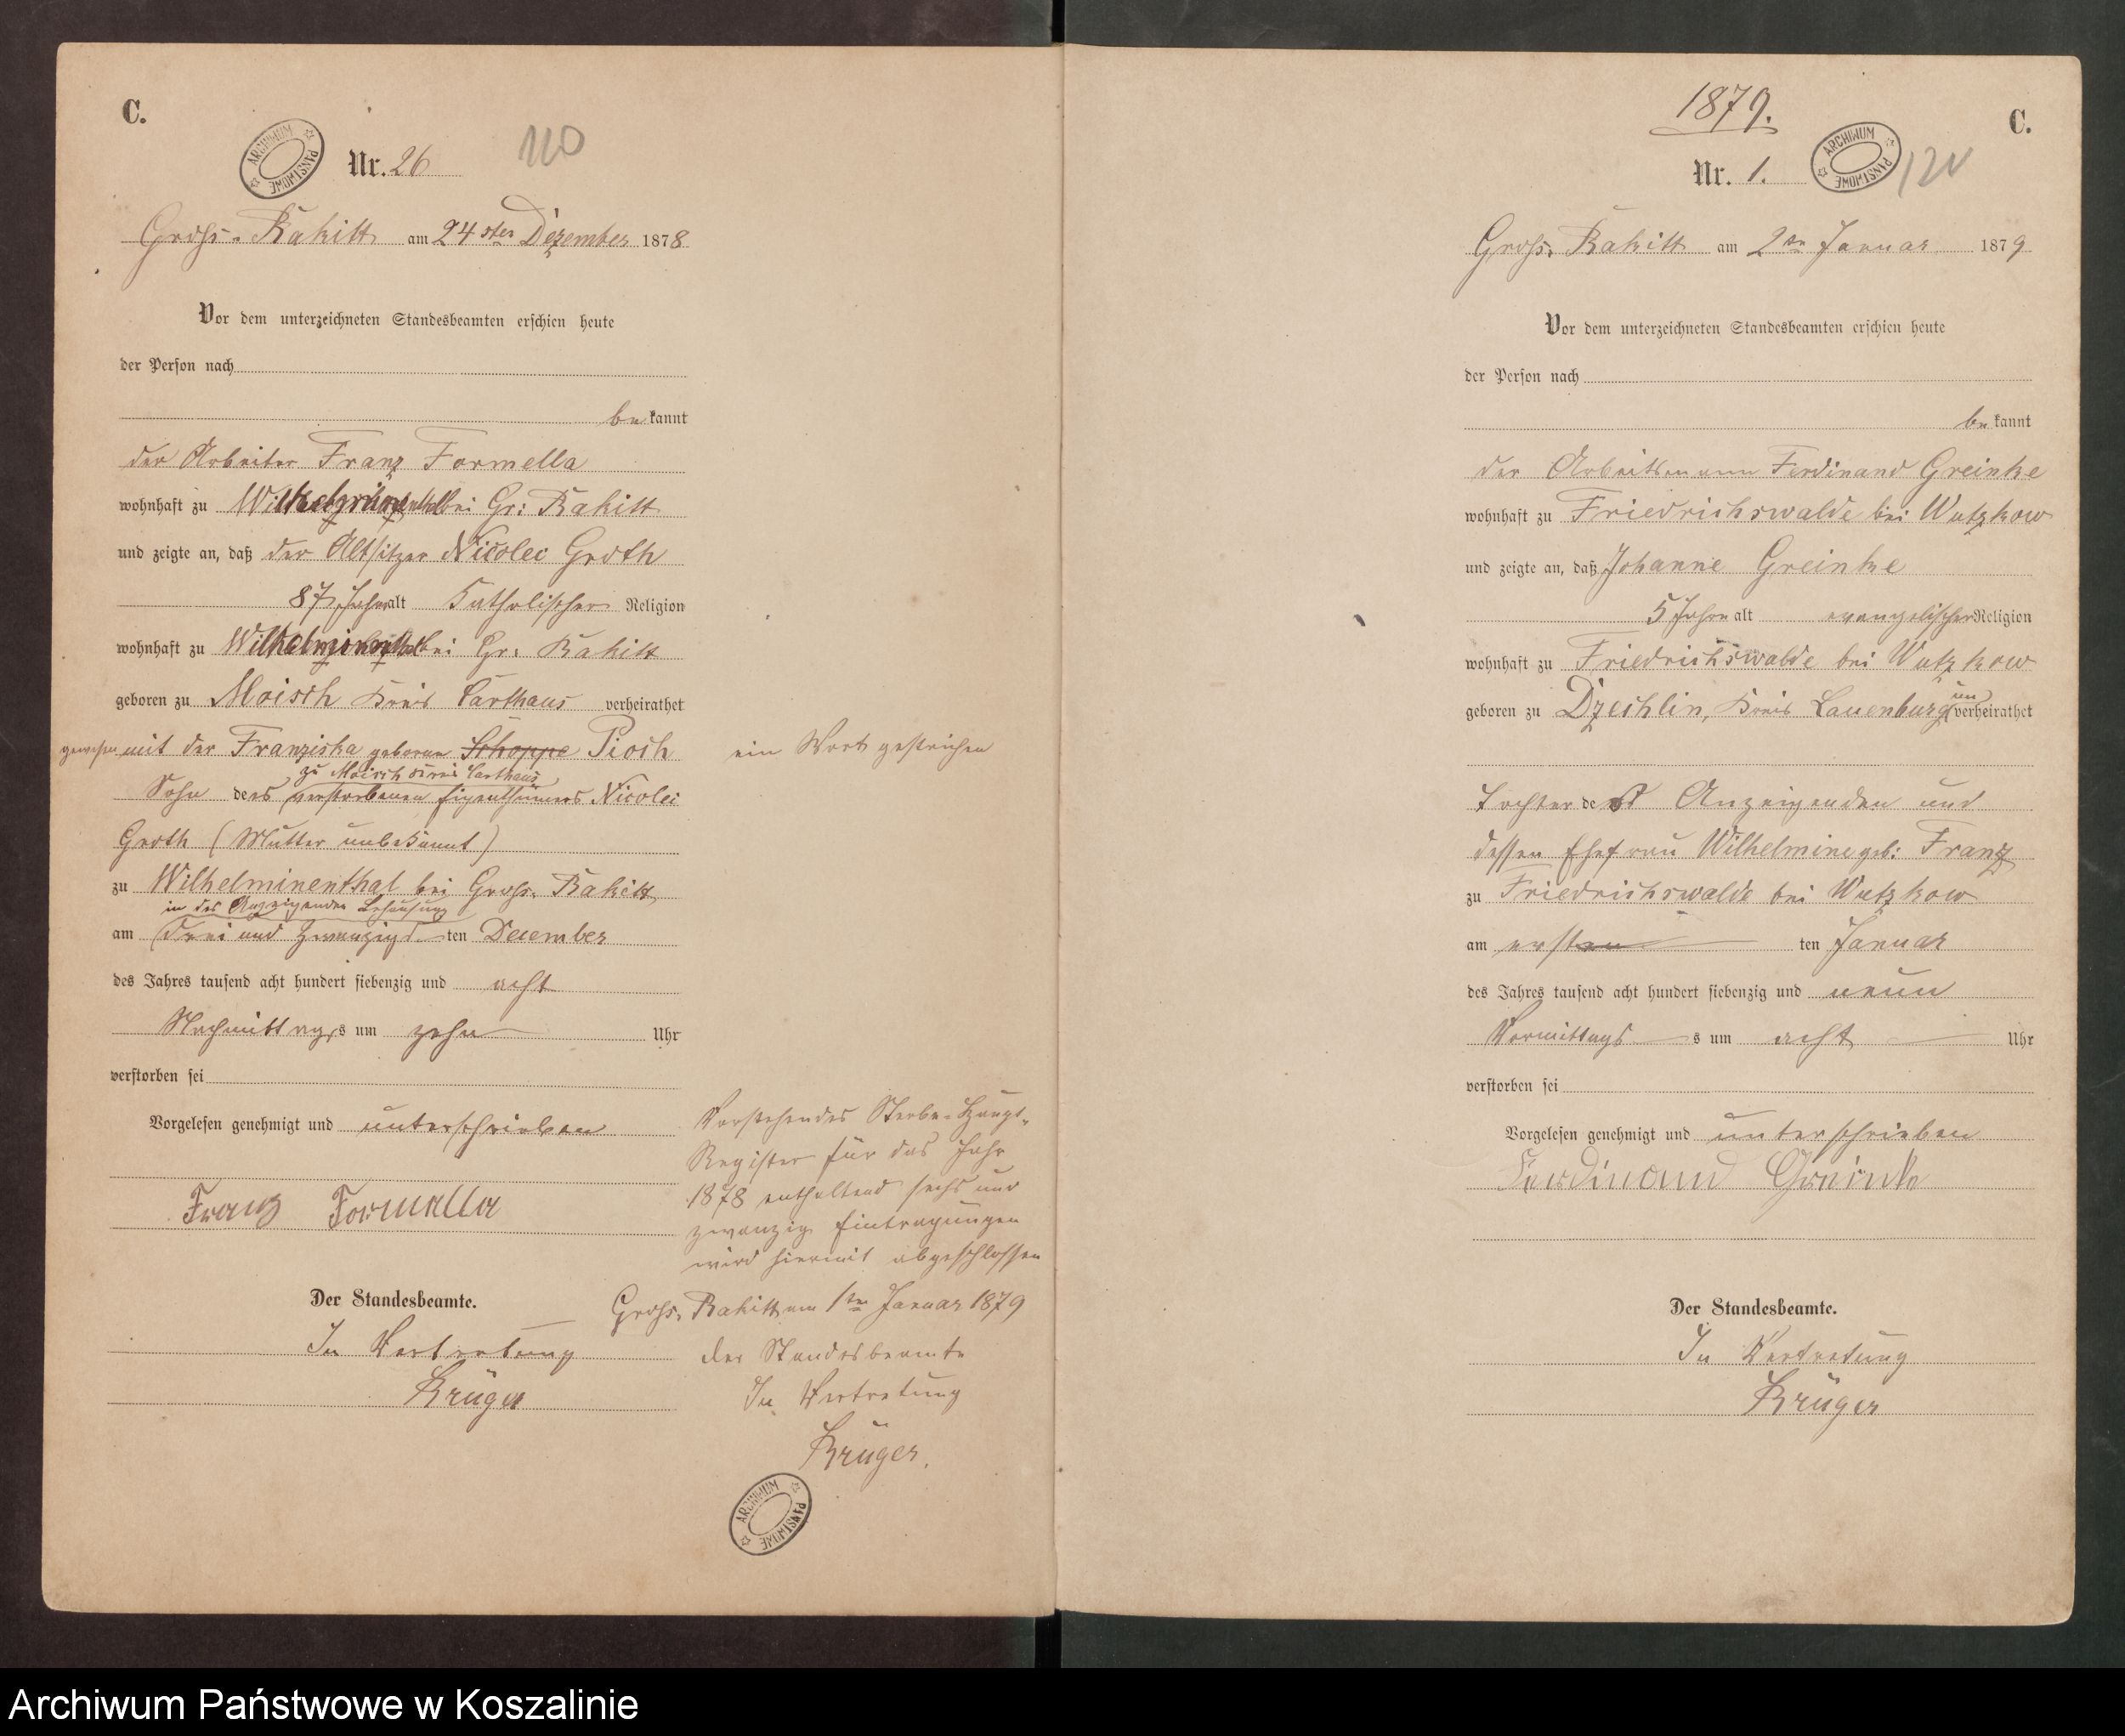 C.
ARCHIWUM PAŃSTWOWE
Nr. 26
110
Gross-Rakitt am 24ster Dezember 1878
Vor dem unterzeichneten Standesbeamten erschien heute
der Person nach
bekannt
der Arbeiter Franz Formella
wohnhaft zu bei Gr: Rakitt
und zeigte an, daß der Altsitzer Nicolei Groth
87 Jahre alt Katholischer Religion
wohnhaft zu Wilhelminenthal bei Gr: Rakitt
geboren zu Moisch Kreis Carthaus verheirathet
gewesen mit der Franziska geborene Schoppe Pioch
ein Wort gestrichen
zu Moisch Kreis Carthaus
Sohn des verstorbenen Eigenthümers Nicolei
Groth (Mutter unbekannt)
zu Wilhelminenthal bei Gross-Rakitt
in des Anzeigenden Behausung
am drei und zwanzigsten December
des Jahres tausend acht hundert siebenzig und acht
Nachmittags um zehn Uhr
verstorben sei
Vorgelesen genehmigt und unterschrieben
Franz Formella
Der Standesbeamte.
In Vertretung
Krüger
Vorstehendes Sterbe-Haupt-
Register für das Jahr
1878 enthaltend sechs und
zwanzig Eintragungen
wird hiermit abgeschlossen
Gross-Rakitt am 1ten Januar 1879
Der Standesbeamte
In Vertretung
Krüger.
ARCHIWUM PAŃSTWOWE
1879.
C.
Nr. 1.
ARCHIWUM PAŃSTWOWE
Gross-Rakitt am 2ten Januar 1879
Vor dem unterzeichneten Standesbeamten erschien heute
der Person nach
bekannt
der Arbeitsmann Ferdinand Greinke
wohnhaft zu Friedrichswalde bei Wutzkow
und zeigte an, daß Johanne Greinke
5 Jahre alt evangelischer Religion
wohnhaft zu Friedrichswalde bei Wutzkow
geboren zu Dzechlin, Kreis Lauenburg unverheirathet
Tochter des Anzeigenden und
dessen Ehefrau Wilhelmine geb: Franz
zu Friedrichswalde bei Wutzkow
am ersten ten Januar
des Jahres tausend acht hundert siebenzig und neun
Vormittags s um acht Uhr
verstorben sei
Vorgelesen genehmigt und unterschrieben
Ferdinand Greinke
Der Standesbeamte.
In Vertretung
Krüger
Archiwum Państwowe w Koszalinie